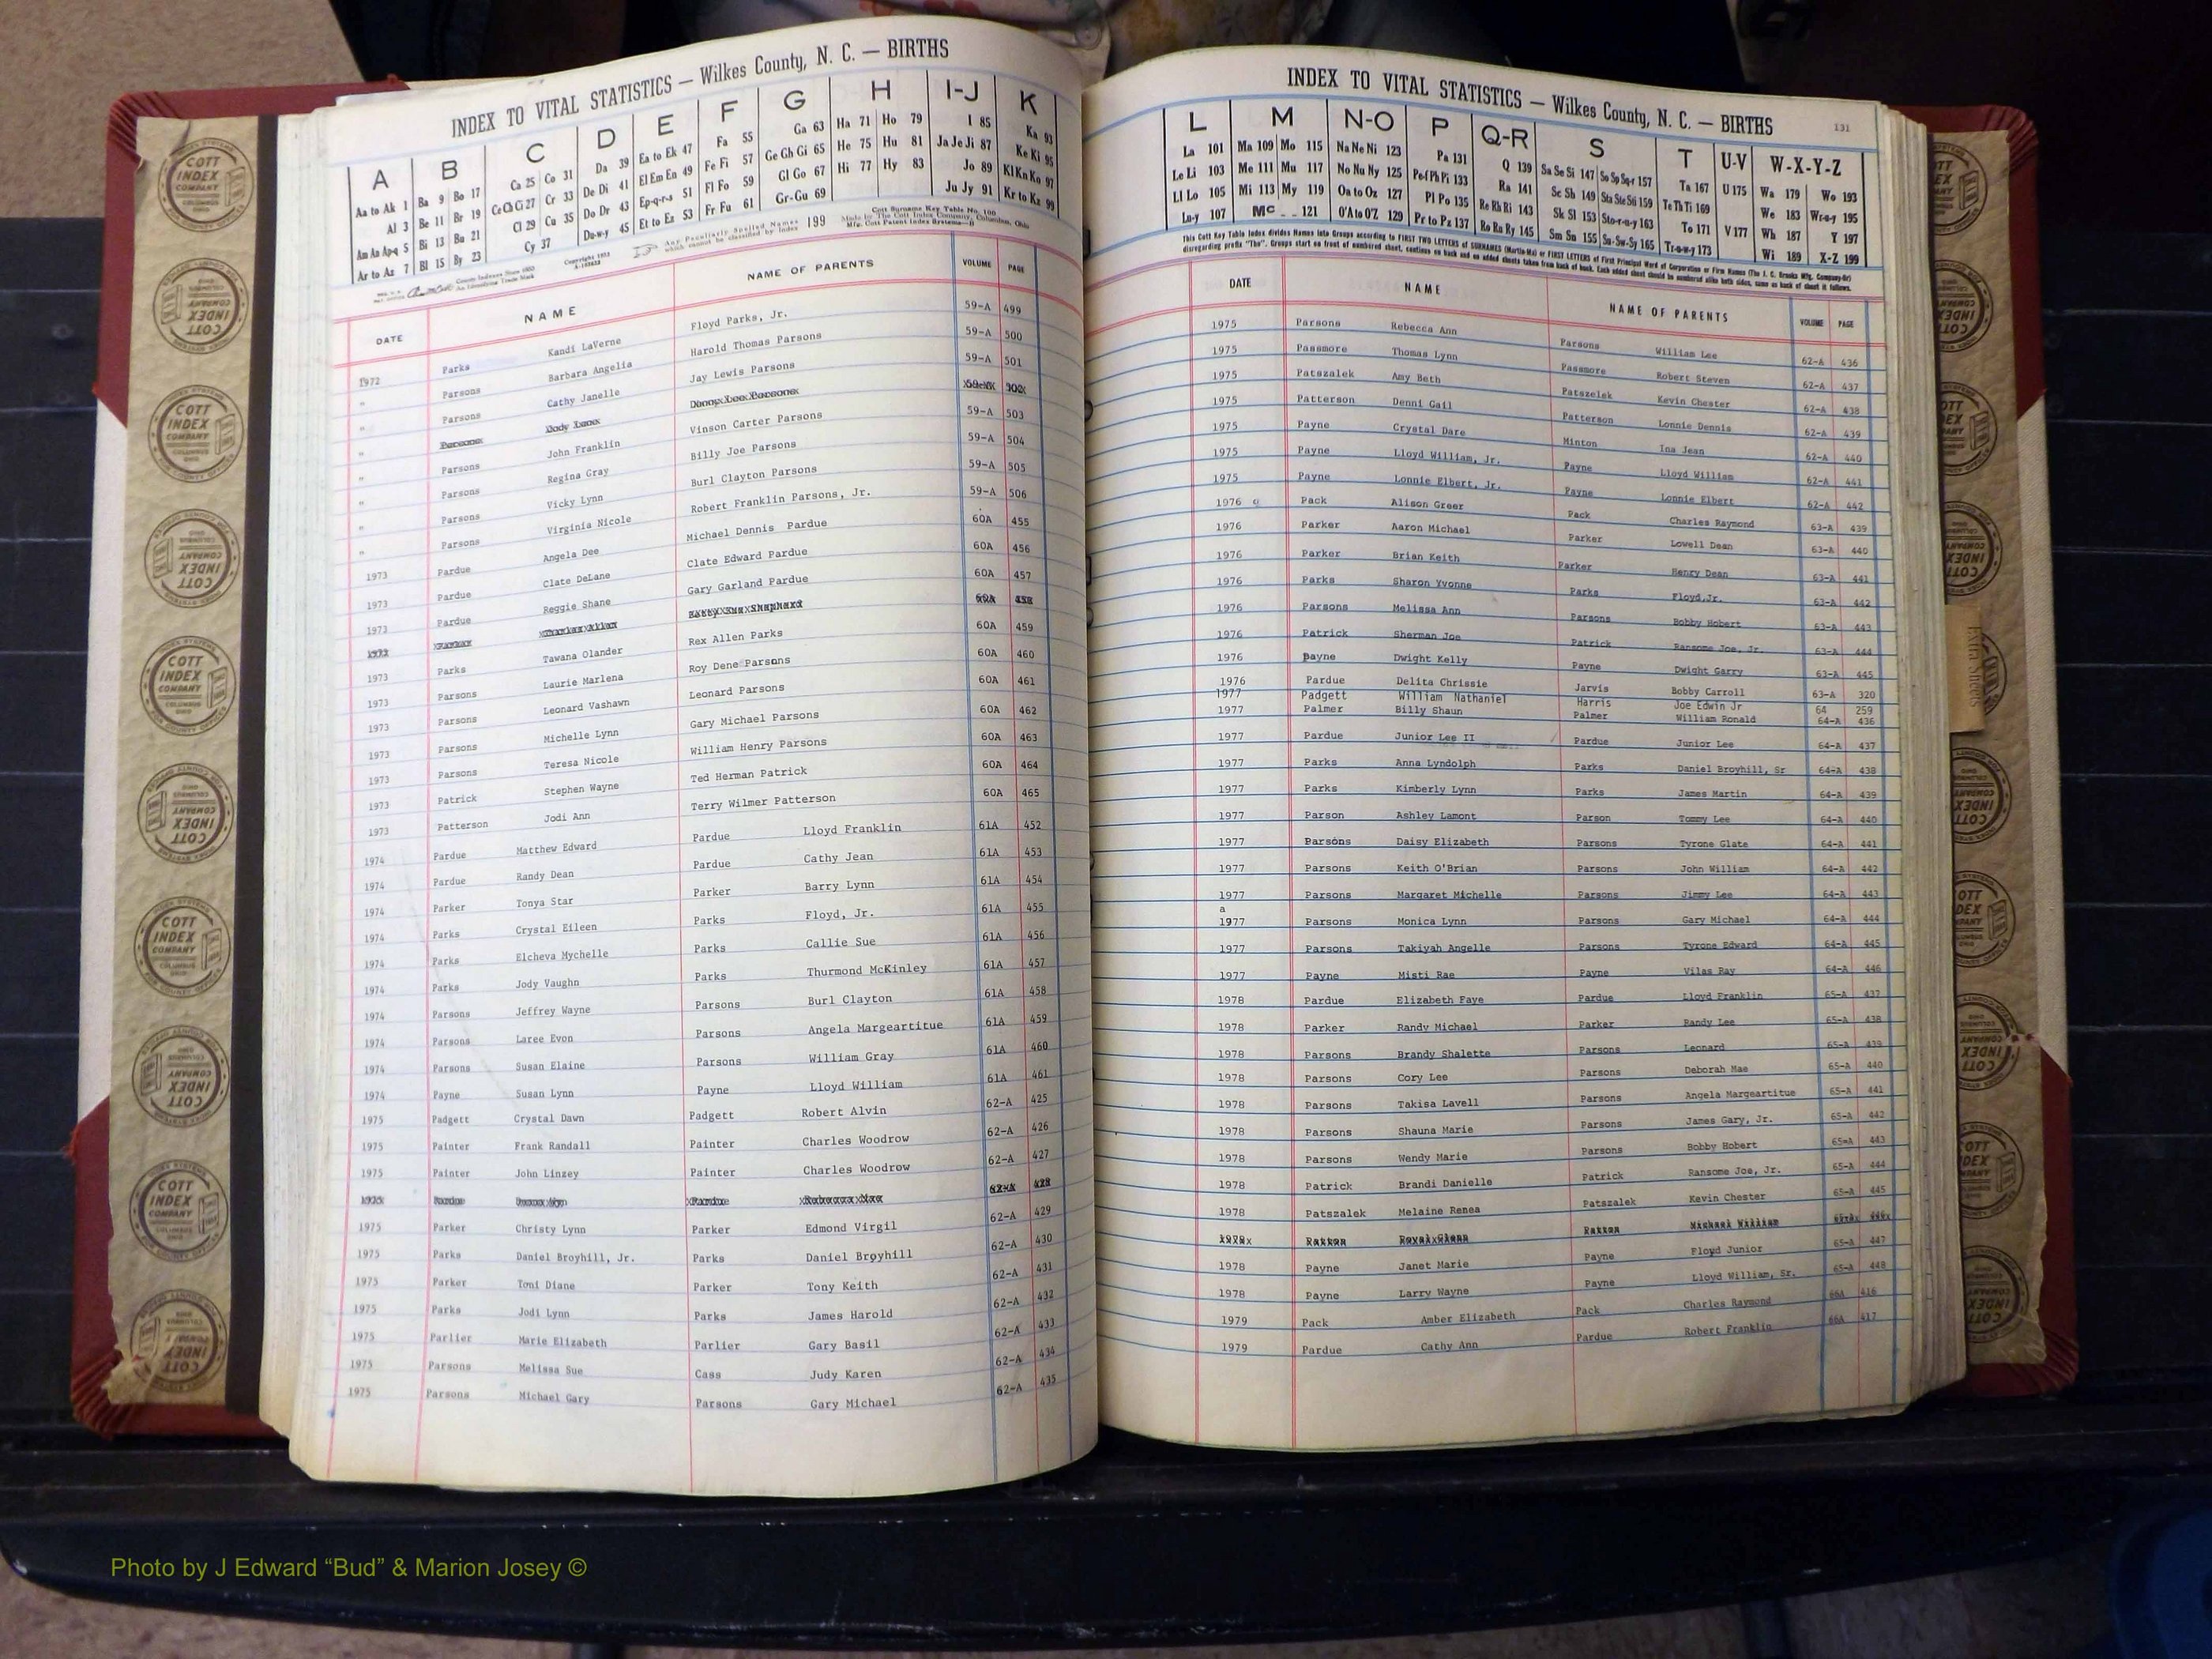 INDEX TO VITAL STATISTICS — Wilkes County, N. C. — BIRTHS
A B C D E F G H I-J K
Aa to Ak 1 Ba 9 Bo 17 Ca 25 Co 31 Da 39 Ea to Ek 47 Fa 55 Ga 63 Ha 71 Ho 79 I 85 Ka 93
Al 3 Be 11 Br 19 Ce Ch Ci 27 Cr 33 De Di 41 El Em En 49 Fe Fi 57 Ge Gh Gi 65 He 75 Hu 81 Ja Je Ji 87 Ke Ki 95
Am An Ap-q 5 Bi 13 Bu 21 Cl 29 Cu 35 Do Dr 43 Ep-q-r-s 51 Fl Fo 59 Gl Go 67 Hi 77 Hy 83 Jo 89 Kl Kn Ko 97
Ar to Az 7 Bl 15 By 23 Cy 37 Du-w-y 45 Et to Ez 53 Fr Fu 61 Gr-Gu 69 Ju Jy 91 Kr to Kz 99
Any Peculiarly Spelled Names which cannot be classified by index 199
Cott Surname Key Table No. 100
Made by The Cott Index Company, Columbus, Ohio
DATE NAME NAME OF PARENTS VOLUME PAGE
1972 Parks Kandi LaVerne Floyd Parks, Jr. 59-A 499
" Parsons Barbara Angelia Harold Thomas Parsons 59-A 500
" Parsons Cathy Janelle Jay Lewis Parsons 59-A 501
" Parsons John Franklin Vinson Carter Parsons 59-A 503
" Parsons Regina Gray Billy Joe Parsons 59-A 504
" Parsons Vicky Lynn Burl Clayton Parsons 59-A 505
" Parsons Virginia Nicole Robert Franklin Parsons, Jr. 59-A 506
1973 Pardue Angela Dee Michael Dennis Pardue 60A 455
1973 Pardue Clate DeLane Clate Edward Pardue 60A 456
1973 Pardue Reggie Shane Gary Garland Pardue 60A 457
1973 Parks Tawana Olander Rex Allen Parks 60A 459
1973 Parsons Laurie Marlena Roy Dene Parsons 60A 460
1973 Parsons Leonard Vashawn Leonard Parsons 60A 461
1973 Parsons Michelle Lynn Gary Michael Parsons 60A 462
1973 Parsons Teresa Nicole William Henry Parsons 60A 463
1973 Patrick Stephen Wayne Ted Herman Patrick 60A 464
1973 Patterson Jodi Ann Terry Wilmer Patterson 60A 465
1974 Pardue Matthew Edward Pardue Lloyd Franklin 61A 452
1974 Pardue Randy Dean Pardue Cathy Jean 61A 453
1974 Parker Tonya Star Parker Barry Lynn 61A 454
1974 Parks Crystal Eileen Parks Floyd, Jr. 61A 455
1974 Parks Elcheva Mychelle Parks Callie Sue 61A 456
1974 Parks Jody Vaughn Parks Thurmond McKinley 61A 457
1974 Parsons Jeffrey Wayne Parsons Burl Clayton 61A 458
1974 Parsons Laree Evon Parsons Angela Margeartitue 61A 459
1974 Parsons Susan Elaine Parsons William Gray 61A 460
1974 Payne Susan Lynn Payne Lloyd William 61A 461
1975 Padgett Crystal Dawn Padgett Robert Alvin 62-A 425
1975 Painter Frank Randall Painter Charles Woodrow 62-A 426
1975 Painter John Linzey Painter Charles Woodrow 62-A 427
1975 Parker Christy Lynn Parker Edmond Virgil 62-A 429
1975 Parks Daniel Broyhill, Jr. Parks Daniel Broyhill 62-A 430
1975 Parker Toni Diane Parker Tony Keith 62-A 431
1975 Parks Jodi Lynn Parks James Harold 62-A 432
1975 Parlier Marie Elizabeth Parlier Gary Basil 62-A 433
1975 Parsons Melissa Sue Cass Judy Karen 62-A 434
1975 Parsons Michael Gary Parsons Gary Michael 62-A 435
INDEX TO VITAL STATISTICS — Wilkes County, N. C. — BIRTHS 131
L M N-O P Q-R S T U-V W-X-Y-Z
La 101 Ma 109 Mo 115 Na Ne Ni 123 Pa 131 Q 139 Sa Se Si 147 So Sp Sq-r 157 Ta 167 U 175 Wa 179 Wo 193
Le Li 103 Me 111 Mu 117 No Nu Ny 125 Pe-f Ph Pi 133 Ra 141 Sc Sh 149 Sta Ste Sti 159 Te Th Ti 169 We 183 Wr-u-y 195
Ll Lo 105 Mi 113 My 119 Oa to Oz 127 Pl Po 135 Re Rh Ri 143 Sk Sl 153 Sto-r-u-y 163 To 171 V 177 Wh 187 Y 197
Lu-y 107 Mc 121 O'A to O'Z 129 Pr to Pz 137 Ro Ru Ry 145 Sm Sn 155 Su-Sw-Sy 165 Tr-u-w-y 173 Wi 189 X-Z 199
DATE NAME NAME OF PARENTS VOLUME PAGE
1975 Parsons Rebecca Ann Parsons William Lee 62-A 436
1975 Passmore Thomas Lynn Passmore Robert Steven 62-A 437
1975 Patszalek Amy Beth Patszelek Kevin Chester 62-A 438
1975 Patterson Denni Gail Patterson Lonnie Dennis 62-A 439
1975 Payne Crystal Dare Minton Ina Jean 62-A 440
1975 Payne Lloyd William, Jr. Payne Lloyd William 62-A 441
1975 Payne Lonnie Elbert, Jr. Payne Lonnie Elbert 62-A 442
1976 Pack Alison Greer Pack Charles Raymond 63-A 439
1976 Parker Aaron Michael Parker Lowell Dean 63-A 440
1976 Parker Brian Keith Parker Henry Dean 63-A 441
1976 Parks Sharon Yvonne Parks Floyd, Jr. 63-A 442
1976 Parsons Melissa Ann Parsons Bobby Hobert 63-A 443
1976 Patrick Sherman Joe Patrick Ransome Joe, Jr. 63-A 444
1976 Payne Dwight Kelly Payne Dwight Garry 63-A 445
1976 Pardue Delita Chrissie Jarvis Bobby Carroll 63-A 320
1977 Padgett William Nathaniel Harris Joe Edwin Jr 64 259
1977 Palmer Billy Shaun Palmer William Ronald 64-A 436
1977 Pardue Junior Lee II Pardue Junior Lee 64-A 437
1977 Parks Anna Lyndolph Parks Daniel Broyhill, Sr 64-A 438
1977 Parks Kimberly Lynn Parks James Martin 64-A 439
1977 Parson Ashley Lamont Parson Tommy Lee 64-A 440
1977 Parsons Daisy Elizabeth Parsons Tyrone Glate 64-A 441
1977 Parsons Keith O'Brian Parsons John William 64-A 442
1977 Parsons Margaret Michelle Parsons Jimmy Lee 64-A 443
a
1977 Parsons Monica Lynn Parsons Gary Michael 64-A 444
1977 Parsons Takiyah Angelle Parsons Tyrone Edward 64-A 445
1977 Payne Misti Rae Payne Vilas Ray 64-A 446
1978 Pardue Elizabeth Faye Pardue Lloyd Franklin 65-A 437
1978 Parker Randy Michael Parker Randy Lee 65-A 438
1978 Parsons Brandy Shalette Parsons Leonard 65-A 439
1978 Parsons Cory Lee Parsons Deborah Mae 65-A 440
1978 Parsons Takisa Lavell Parsons Angela Margeartitue 65-A 441
1978 Parsons Shauna Marie Parsons James Gary, Jr. 65-A 442
1978 Parsons Wendy Marie Parsons Bobby Hobert 65-A 443
1978 Patrick Brandi Danielle Patrick Ransome Joe, Jr. 65-A 444
1978 Patszalek Melaine Renea Patszalek Kevin Chester 65-A 445
1978 Payne Janet Marie Payne Floyd Junior 65-A 447
1978 Payne Larry Wayne Payne Lloyd William, Sr. 65-A 448
1979 Pack Amber Elizabeth Pack Charles Raymond 66A 416
1979 Pardue Cathy Ann Pardue Robert Franklin 66A 417
COTT INDEX COMPANY COLUMBUS OHIO
Photo by J Edward “Bud” & Marion Josey ©